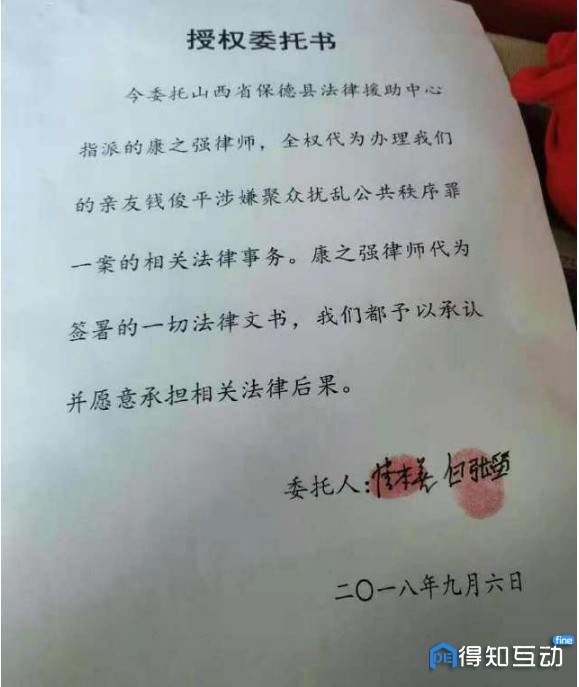 授权委托书
今委托山西省保德县法律援助中心
指派的康之强律师，全权代为办理我们
的亲友钱俊平涉嫌聚众扰乱公共秩序罪
一案的相关法律事务。康之强律师代为
签署的一切法律文书，我们都予以承认
并愿意承担相关法律后果。
委托人：
二〇一八年九月六日
得知互动
fine